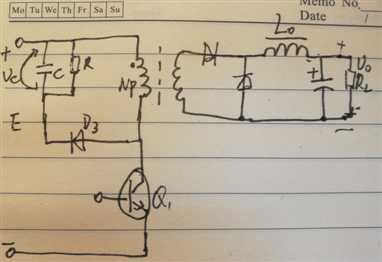 Mo Tu We Th Fr Sa Su
Memo No.
Date 1
Lo
+
+
Vc
C
R
Np
+
Vo
RL
E
D3
-
Q1
-